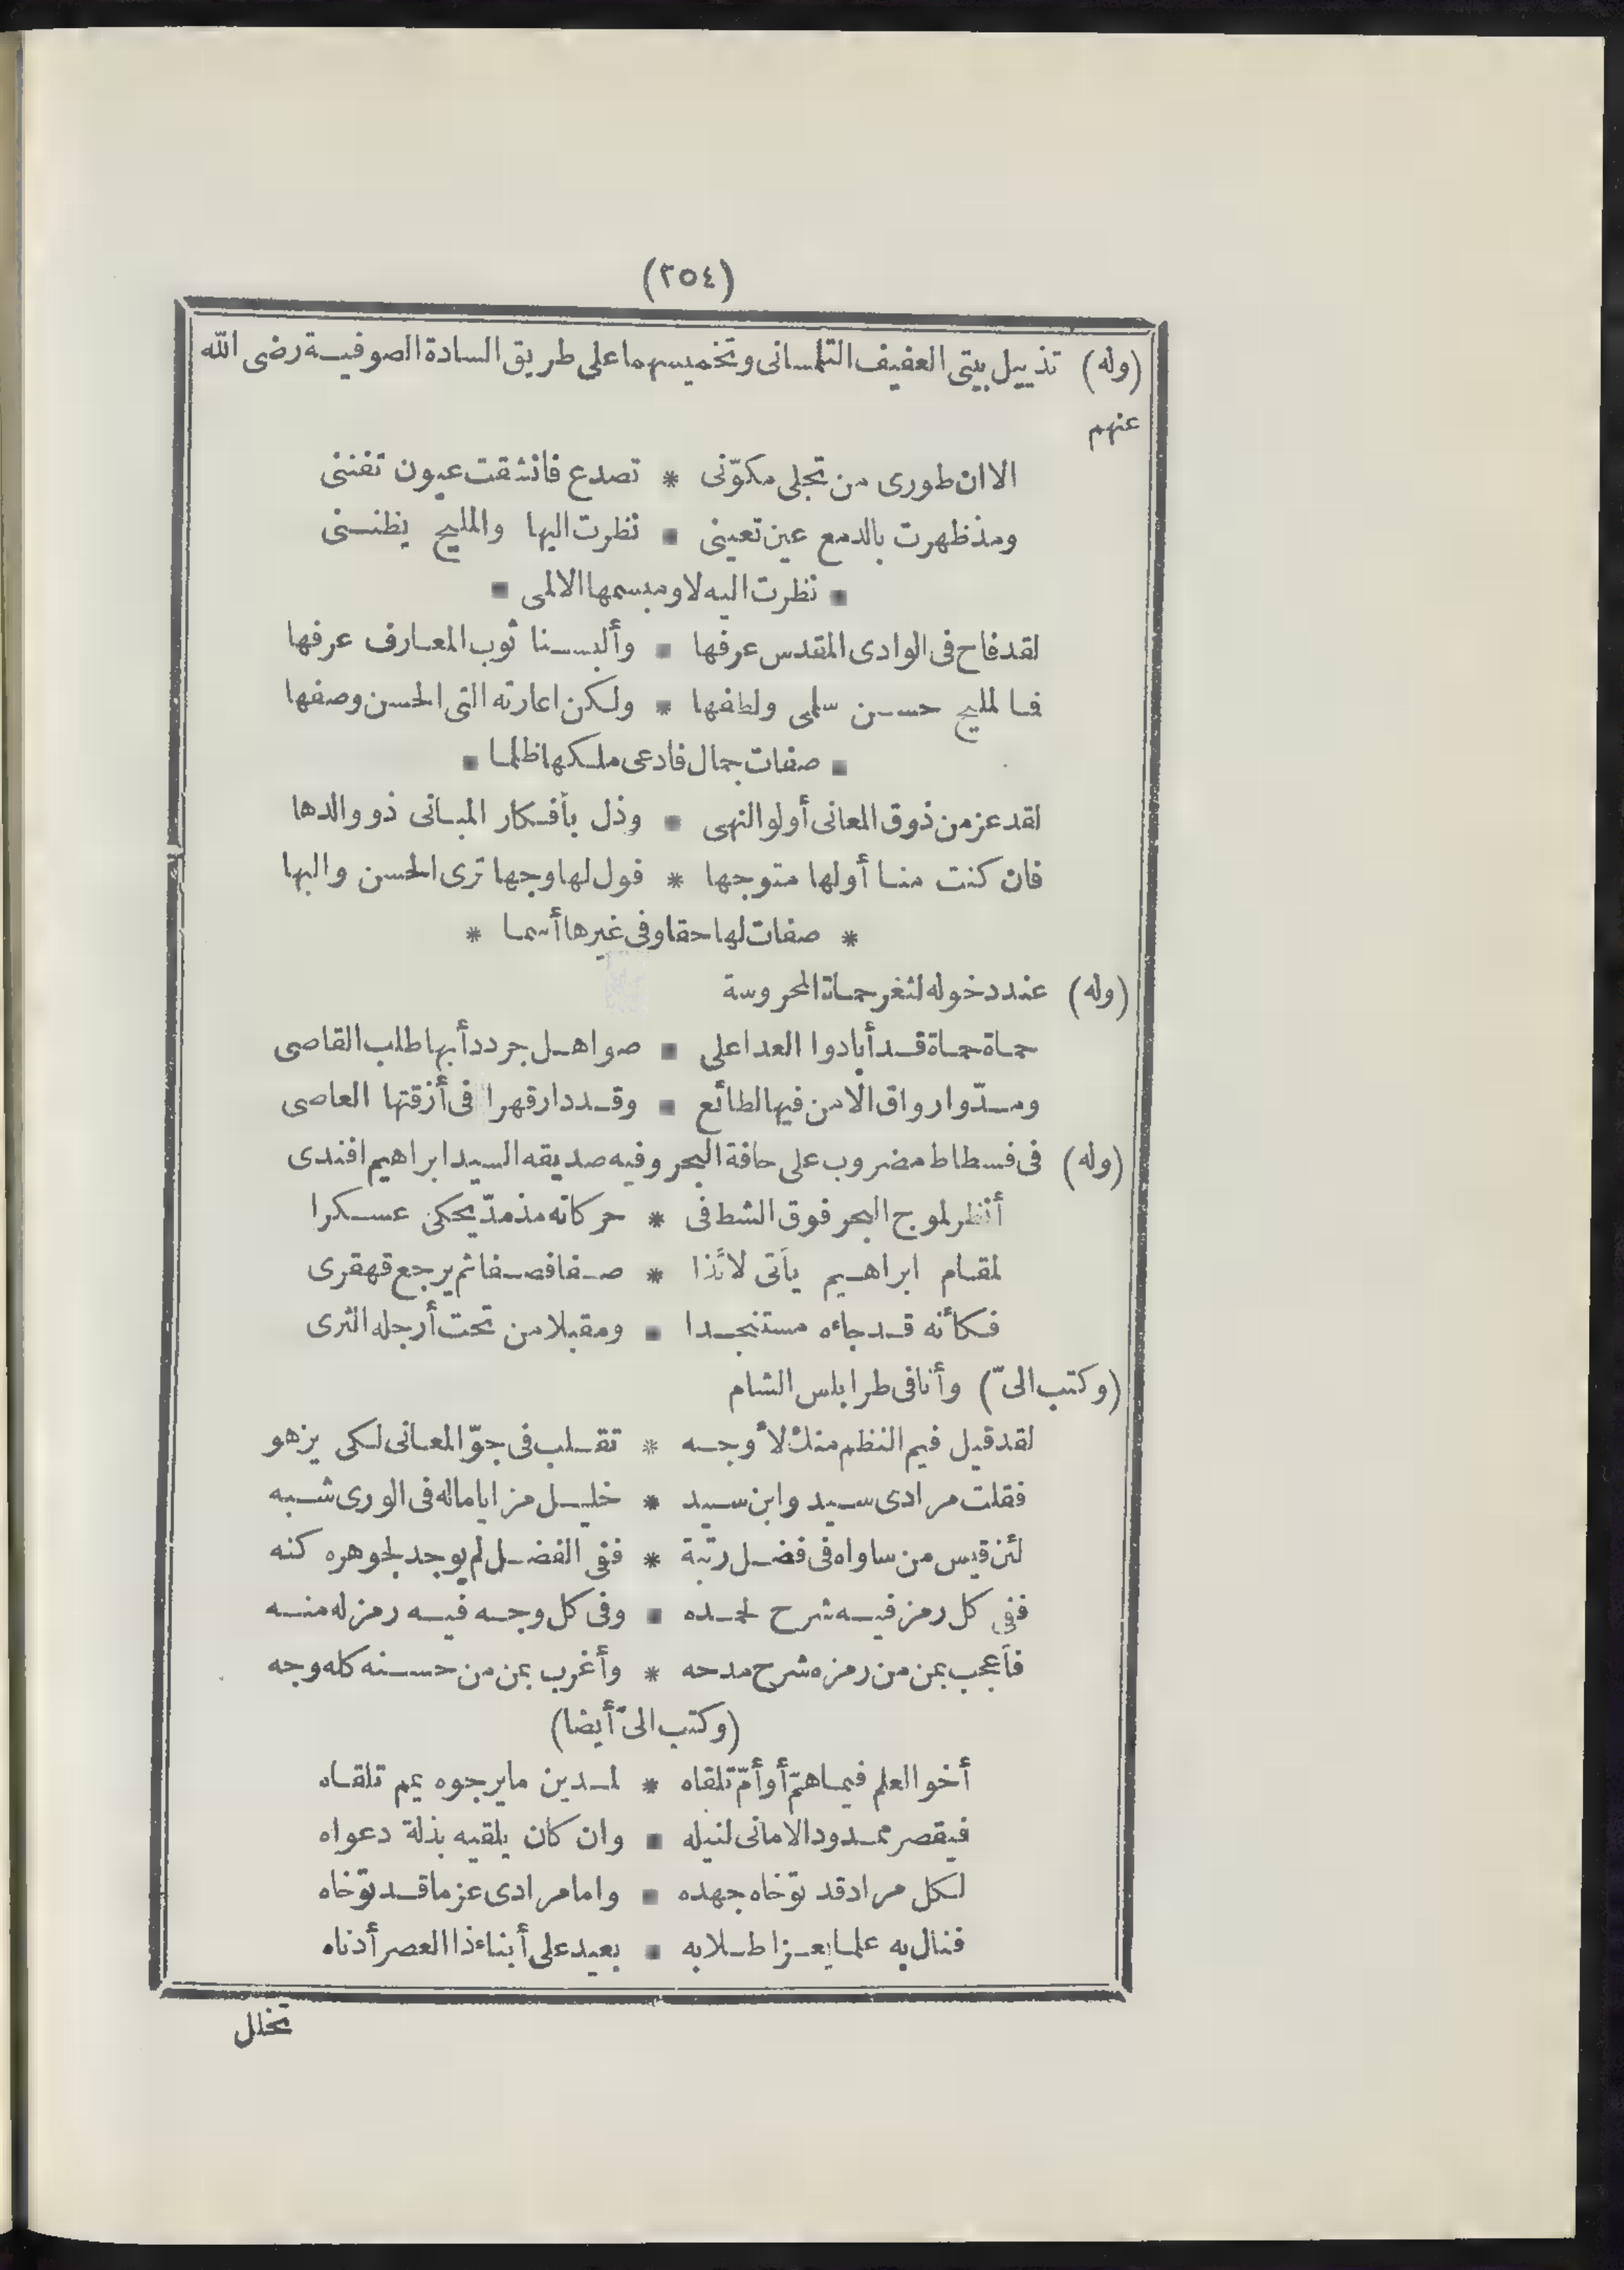 (٢٥٤)
(وله) تذييل بيتى العفيف التلمسانى وتخميسهما على طريق السادة الصوفية رضى الله
عنهم
الا ان طورى من تجلى مكوّنى * تصدع فانشقت عيون تفننى
ومذ ظهرت بالدمع عين تعيننى * نظرت اليها والمليح يظننى
* نظرت اليه لا ومبسمها الالمى *
لقد فاح فى الوادى المقدس عرفها * وألبسنا ثوب المعارف عرفها
فما لمليح حسن سلمى ولطفها * ولكن اعارته التى الحسن وصفها
* صفات جمال فادعى ملكها ظلما *
لقد عز من ذوق المعانى أولو النهى * وذل بأفكار المبانى ذوو الدها
فان كنت منا أولها متوجها * فول لها وجها ترى الحسن والبها
* صفات لها حقا وفى غيرها أسما *
(وله) عند دخوله لثغر حماة المحروسة
حماة حماة قد أبادوا العدا على * صواهل جرد دأبها طلب القاصى
ومدّوا رواق الامن فيها لطائع * وقد دار قهرا فى أزقتها العاصى
(وله) فى فسطاط مضروب على حافة البحر وفيه صديقه السيد ابراهيم افندى
أنظر لموج البحر فوق الشط فى * حركاته مذ مدّ يحكى عسكرا
لمقام ابراهيم يأتى لائذا * صفا فصفا ثم يرجع قهقرى
فكأنه قد جاءه مستنجدا * ومقبلا من تحت أرجله الثرى
(وكتب الىّ) وأنا فى طرابلس الشام
لقد قيل فيم النظم منك لأوجه * تقلب فى جوّ المعانى لكى يزهو
فقلت مرادى سيد وابن سيد * خليل مزايا ماله فى الورى شبه
لئن قيس من ساواه فى فضل رتبة * ففى الفضل لم يوجد لجوهره كنه
ففى كل رمز فيه شرح لحمده * وفى كل وجه فيه رمز له منه
فأعجب بمن من رمزه شرح مدحه * وأغرب بمن من حسنه كله وجه
(وكتب الىّ أيضا)
أخو العلم فيما همّ أو أمّ تلقاه * لمدين ما يرجوه يمم تلقاه
فيقصر ممدود الامانى لنيله * وان كان يلقيه بذلة دعواه
لكل مراد قد توّخاه جهده * واما مرادى عز ما قد توّخاه
فنال به علما يعز اطلابه * بعيد على أبناء ذا العصر أدناه
تخلل